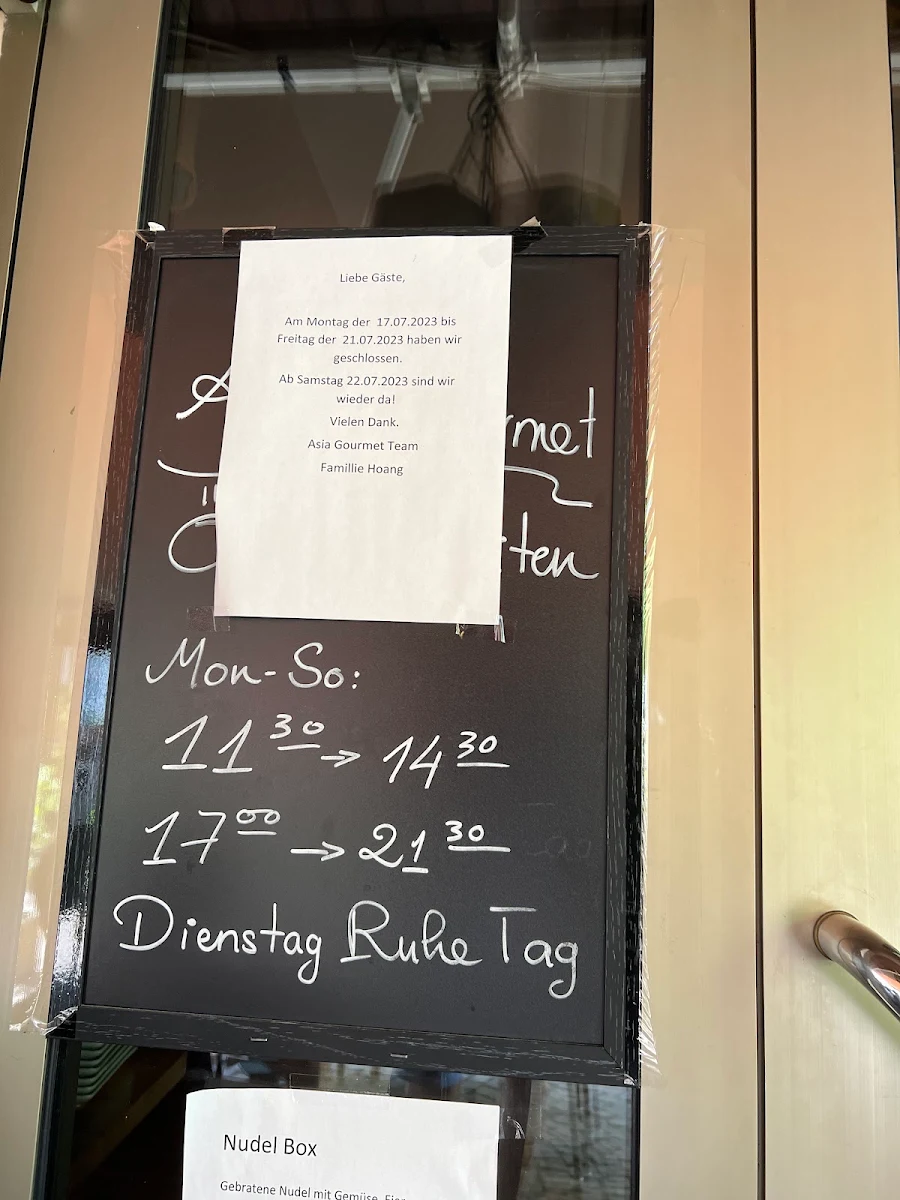 Liebe Gäste,
Am Montag der 17.07.2023 bis
Freitag der 21.07.2023 haben wir
geschlossen.
Ab Samstag 22.07.2023 sind wir
wieder da!
Vielen Dank.
Asia Gourmet Team
Famillie Hoang
A rmet
Ö iten
Mon-So:
11 30 → 14 30
17 00 → 21 30
Dienstag Ruhe Tag
Nudel Box
Gebratene Nudel mit Gemüse,